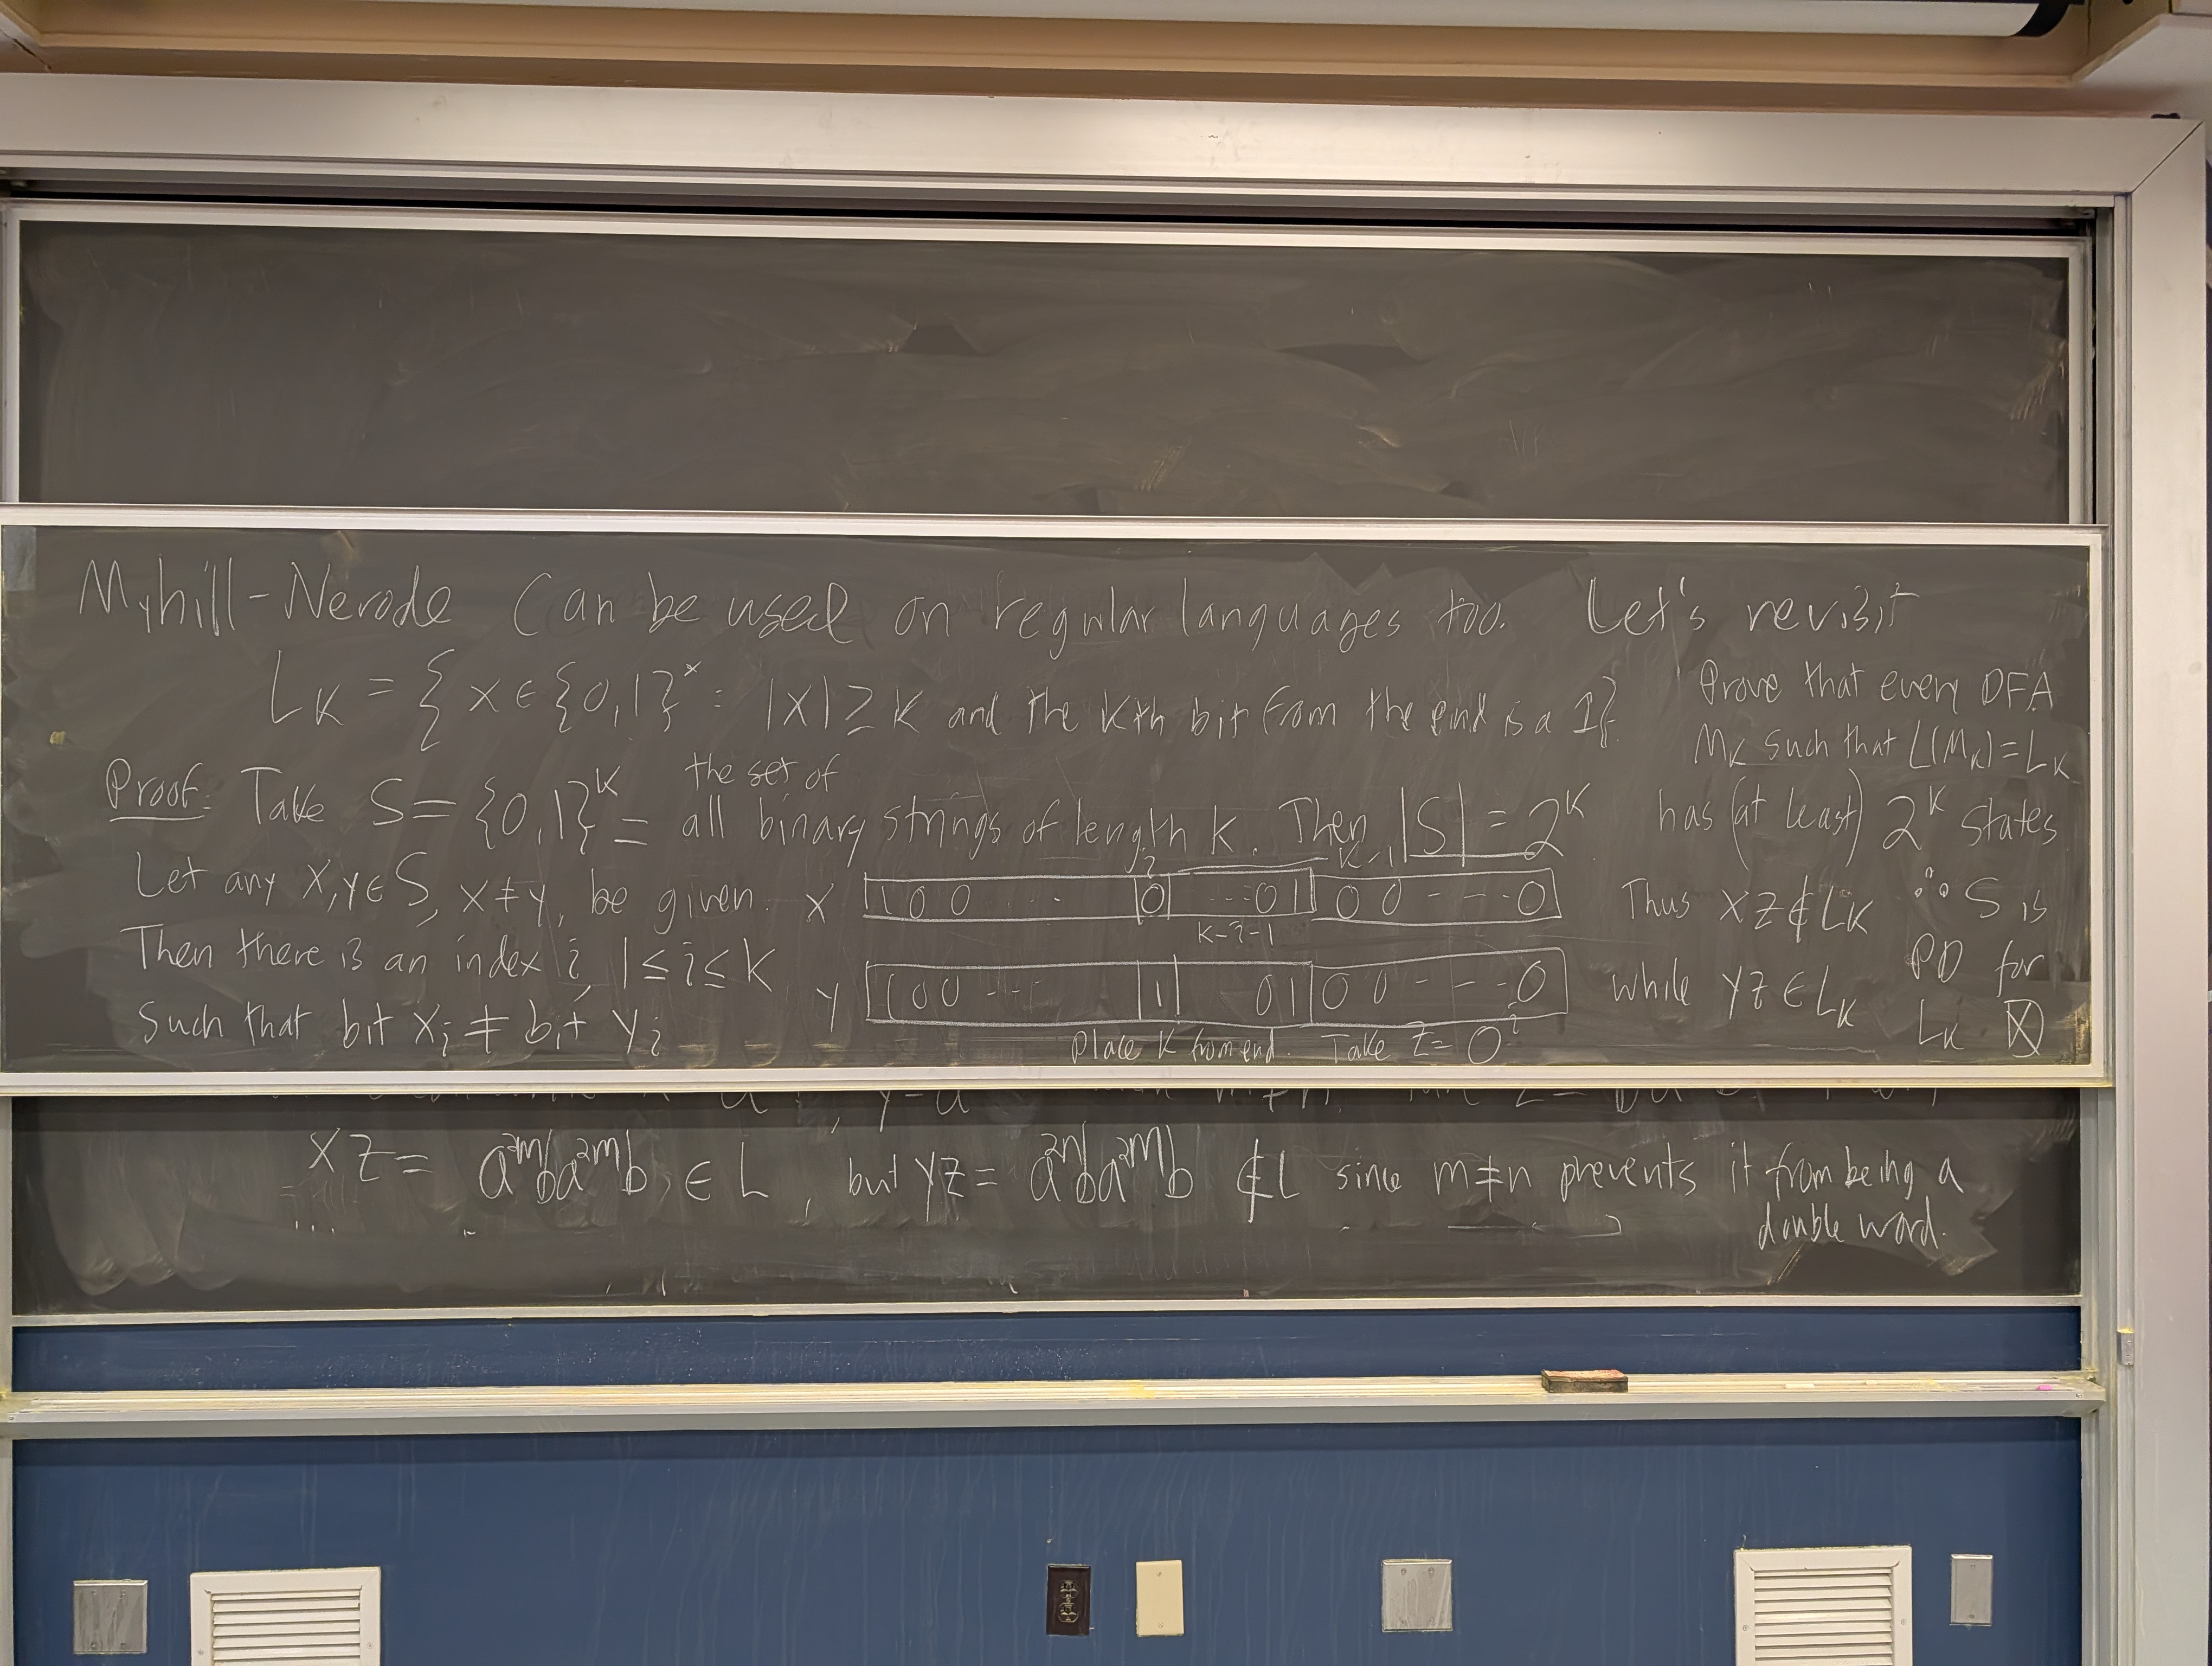 Myhill-Nerode Can be used on regular languages too. Let's revisit
L_K = { x ∈ {0,1}* : |x| ≥ K and the Kth bit from the end is a 1}.
Prove that every DFA
M_K such that L(M_K) = L_K
has (at least) 2^K states
Proof: Take S = {0,1}^K = the set of all binary strings of length K. Then |S| = 2^K
Let any x, y ∈ S, x ≠ y, be given.
Then there is an index i, 1 ≤ i ≤ K
Such that bit x_i ≠ bit y_i
i K-1
X 1 0 0 ... 0 ...01 0 0 - - - 0
K-i-1
Y 1 0 0 --- 1 01 0 0 - - - 0
Place K from end. Take Z = 0^i
Thus XZ ∉ L_K
while YZ ∈ L_K
∴ S is
PD for
L_K ☒
XZ = a^{2m}ba^{2m}b ∈ L, but YZ = a^{2n}ba^{2m}b ∉ L since m ≠ n prevents it from being a
double word.